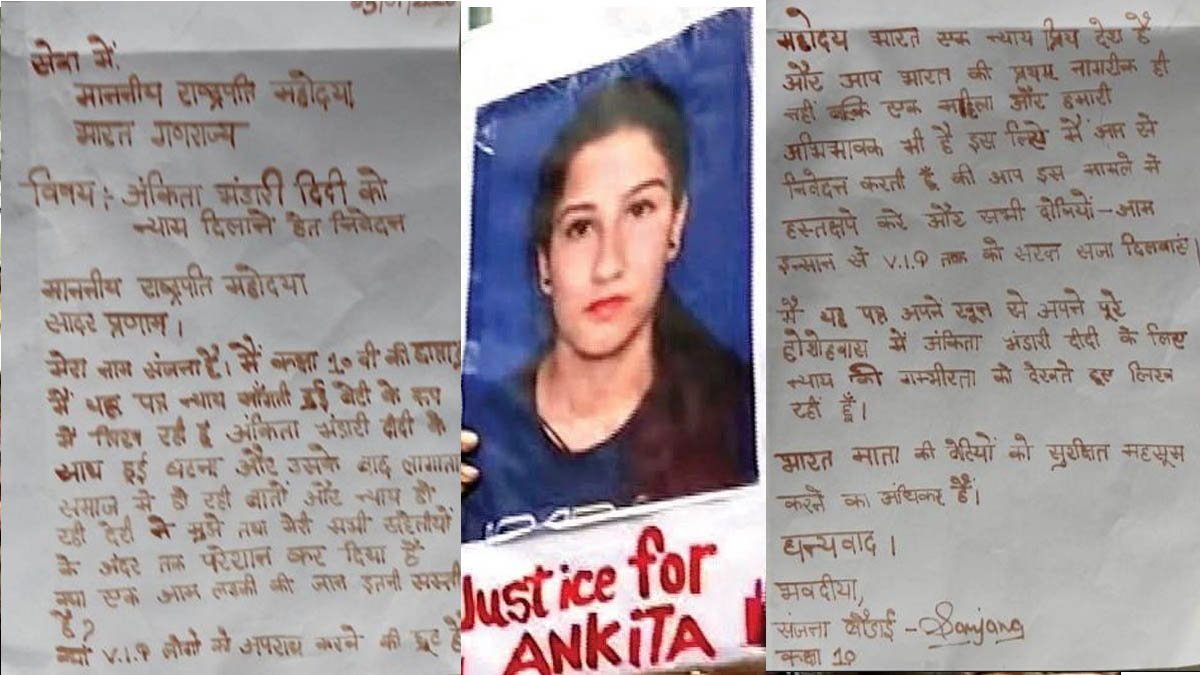 सेवा में,
माननीय राष्ट्रपति महोदया,
भारत गणराज्य
विषय :- अंकिता भंडारी दिदी को
न्याय दिलाने हेत निवेदन
माननीय राष्ट्रपति महोदया
सादर प्रणाम।
मेरा नाम संजना है। मैं कक्षा 10 वी की
मैं यह पत्र न्याय माँगती हुई बेटी के रूप
में लिख रही हूं अंकिता भंडारी दीदी के
साथ हुई घटना और उसके बाद लागाता
समाज में हो रही बातों और न्याय हो
रही देरी ने मुझे तथा मेरी सभी सहेलीयों
के अंदर तक परेशान कर दिया है
क्या एक आम लडकी की जान इतनी सस्ती
है?
क्यों V.I.P लोगो को अपराध करने की छूट है
Justice for
ANKiTA
महोदय भारत एक न्याय प्रिय देश है
और आप भारत की प्रथम नागरीक ही
नहीं बल्कि एक महिला और हमारी
अभिभावक भी है इस लिये मैं आप से
निवेदन करती हूँ की आप इस मामले में
हस्तक्षपे करे और सभी दोषियों - आम
इन्सान से V.I.P तक को सख्त सजा दिलवाएं
मैं यह पत्र अपने खून से अपने पूरे
होशोहवास में अंकिता भंडारी दीदी के लिए
न्याय की गम्भीरता को देखते हुए लिख
रही हूँ।
भारत माता की बेटियों को सुरक्षित महसूस
करने का अधिकर है।
धन्यवाद।
भवदीया,
संजना - Sanjana
कक्षा 10